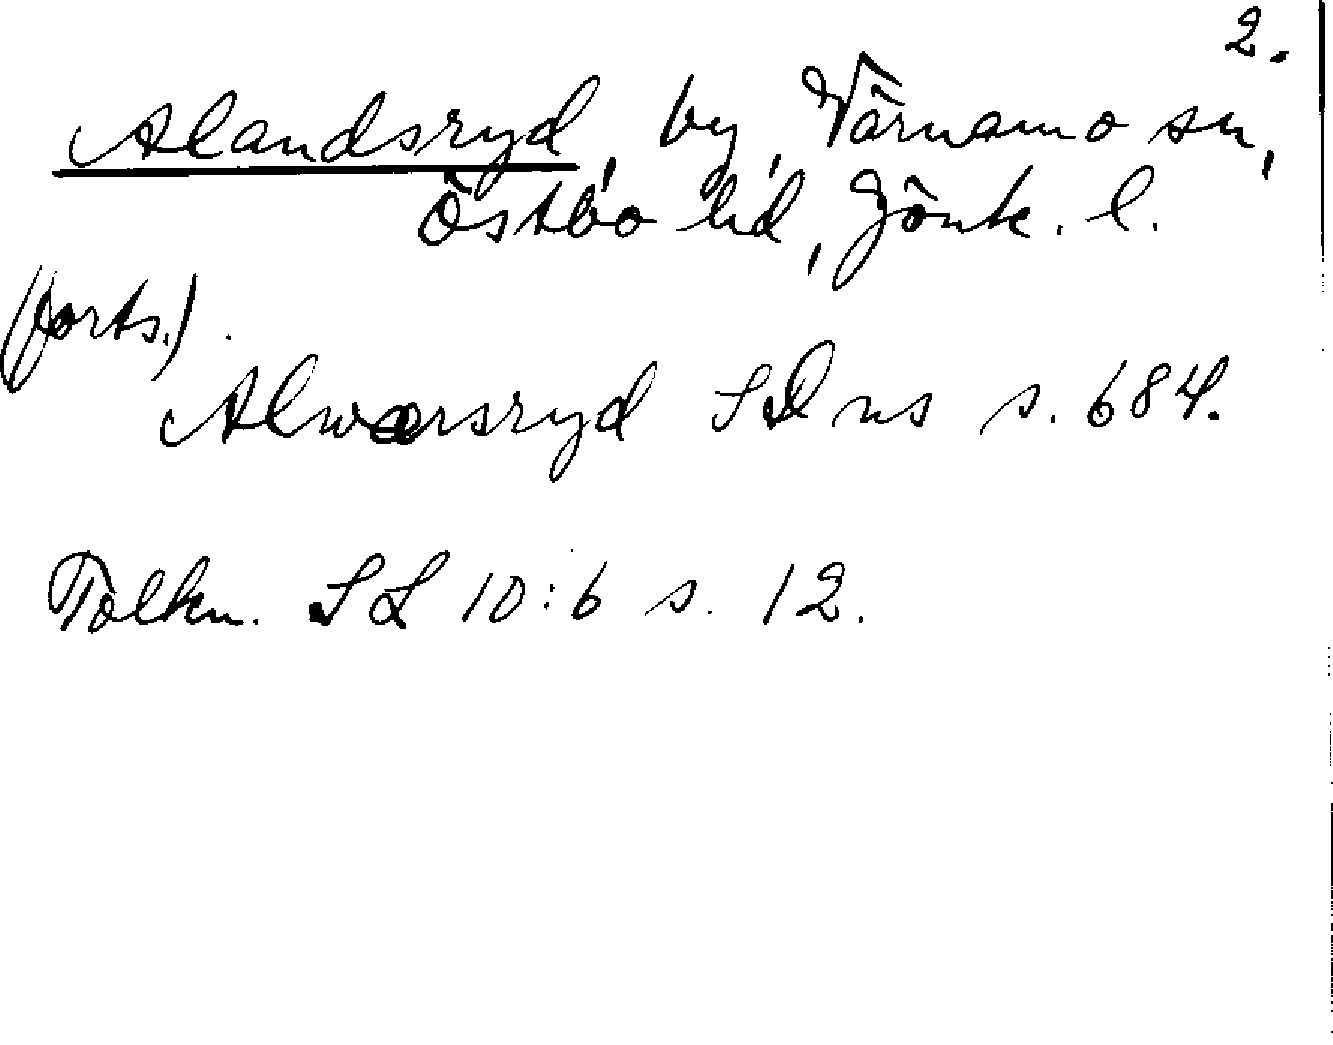 2.
Alandsryd, by, Värnamo sn,
Östbo hd, Jönk. l.
(forts.).
Alwarsryd SD ns s. 684.
Tolkn. SL 10:6 s. 12.